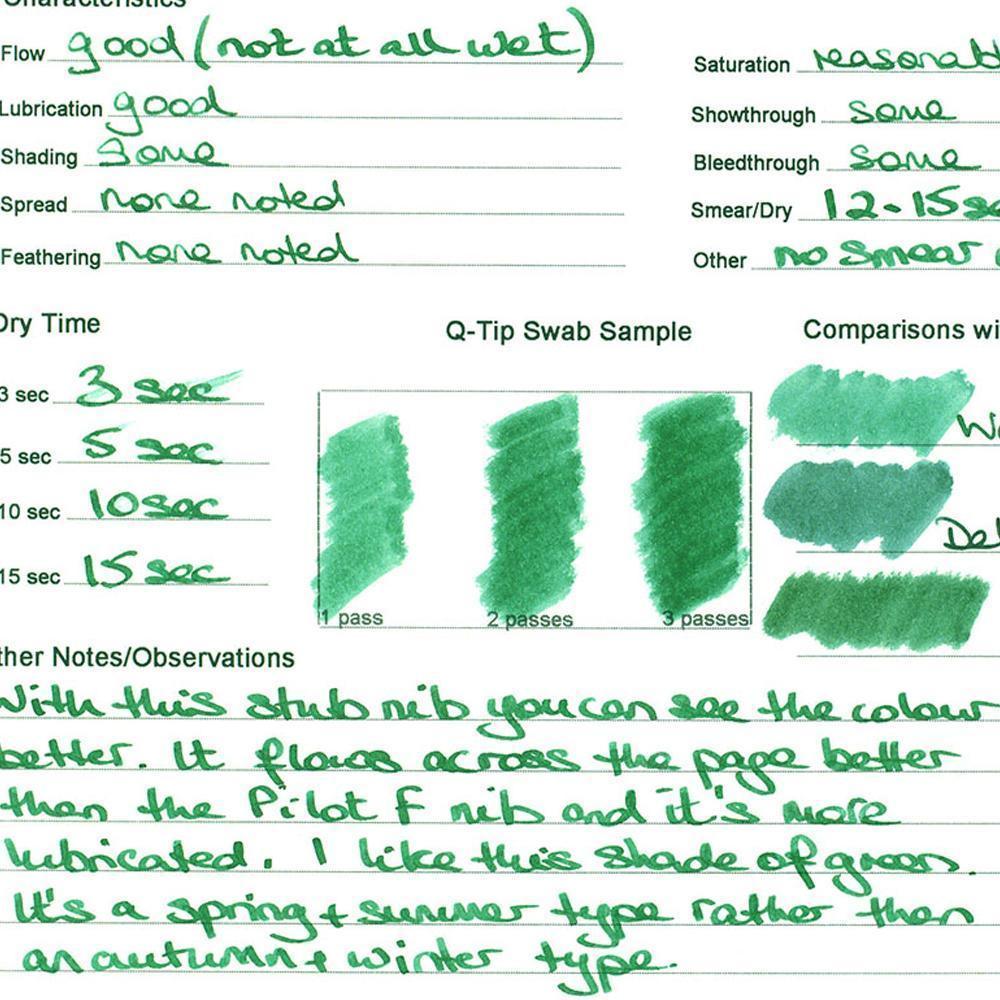 Characteristics
Flow good (not at all wet)
Saturation reasonabl
Lubrication good
Showthrough some
Shading some
Bleedthrough some
Spread none noted
Smear/Dry 12-15 se
Feathering none noted
Other no smear
Dry Time
Q-Tip Swab Sample
Comparisons wi
3 sec 3 sec
5 sec 5 sec
10 sec 10 sec
15 sec 15 sec
1 pass
2 passes
3 passes
Del
ther Notes/Observations
With this stub nib you can see the colour
better. It flows across the page better
then the Pilot F nib and it's more
lubricated. I like this shade of green.
It's a spring + summer type rather then
an autumn + winter type.